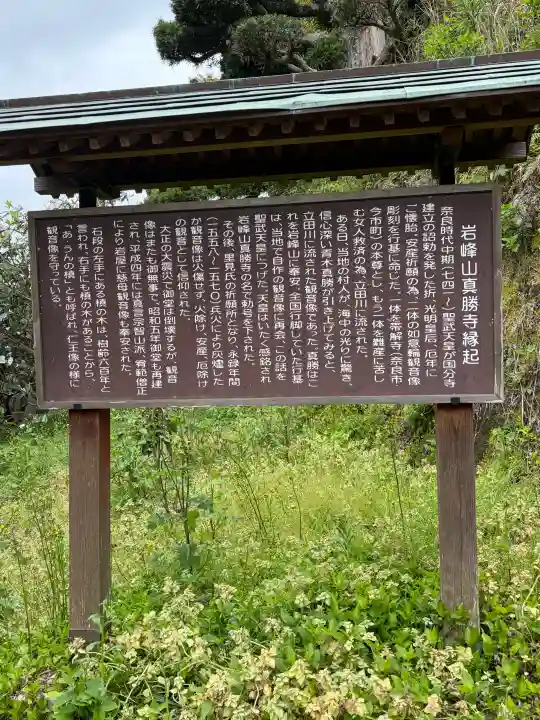 岩峰山真勝寺縁起
奈良時代中期(七四一)聖武天皇が国分寺
建立の詔勅を発した折、光明皇后、厄年に
ご懐胎、安産祈願の為、二体の如意輪観音像
彫刻を行基に命じた。一体を帯解寺(奈良市
今市町)の本尊とし、もう一体を難産に苦し
む女人救済の為、立田川に流された。
ある日、当地の村人が、海中の光りに驚き
信心深い青木真勝が引き上げてみると、
立田川に流された観音像であった。真勝はこ
れを岩峰山に奉安、全国行脚していた行基
は、当地で自作の観音像に再会、この話を
聖武天皇につげた。天皇はいたく感銘され
岩峰山真勝寺の名で勅号を下された。
その後、里見氏の祈願所となり、永録年間
(一五五八〜一五七〇)兵火により灰燼した
が観音像は火災せず、火除け、安産、厄除け
の観音として信仰された。
大正の大震災で御堂は倒壊するが、観音
像はまたも御無事で、昭和五年御堂も再建
され、平成四年には真言宗智山派、宥範僧正
により、岩屋に慈母観音像も奉安された。
石段の左手にある槙の木は、樹齢六百年と
言われ、右手にも槙の木があることから、
「あ・うんの槙」とも呼ばれ、仁王像の様に
観音像を守っている。